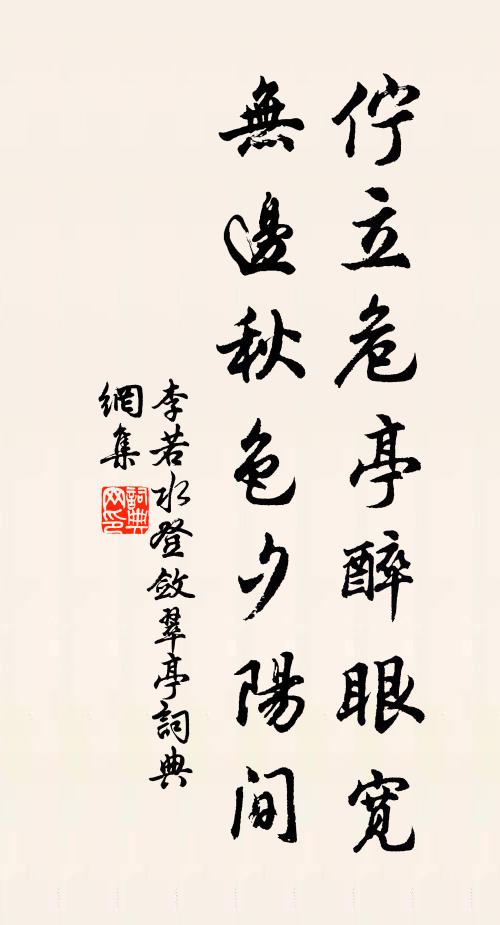 佇立危亭醉眼寬
無邊秋色夕陽间
李若水登斂翠亭詞典
網集
詞典
网印